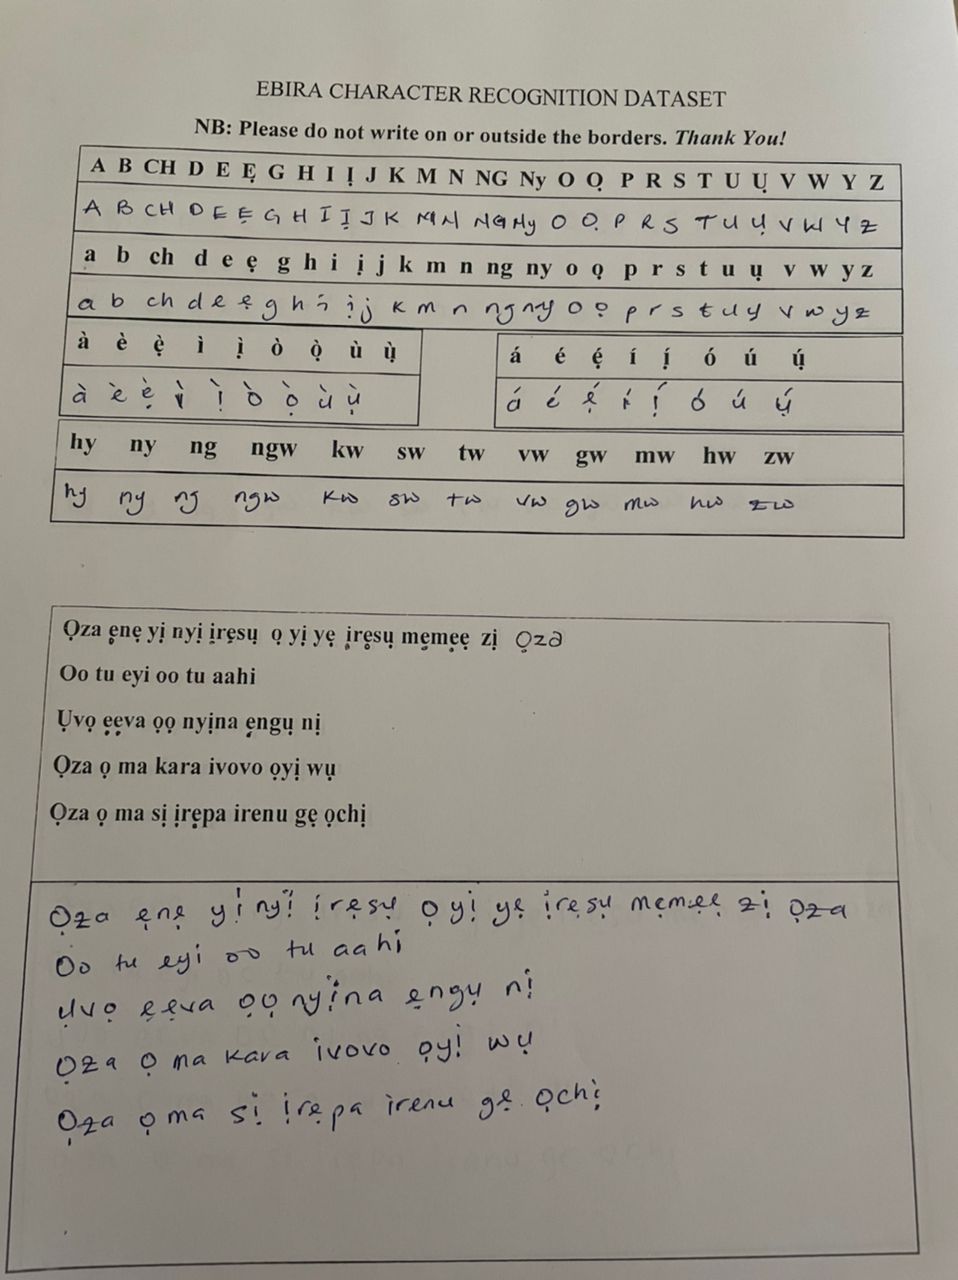 EBIRA CHARACTER RECOGNITION DATASET
NB: Please do not write on or outside the borders. Thank You!
A B CH D E Ẹ G H I Ị J K M N NG Ny O Ọ P R S T U Ụ V W Y Z
A B CH D E Ẹ G H I Ị J K M N NG Ny O Ọ P R S T U Ụ V W Y Z
a b ch d e ẹ g h i ị j k m n ng ny o ọ p r s t u ụ v w y z
a b ch d e ẹ g h i ị j k m n ng ny o ọ p r s t u ụ v w y z
à è ẹ̀ ì ị̀ ò ọ̀ ù ụ̀
á é ẹ́ í ị́ ó ú ụ́
à è ẹ̀ ì ị̀ ò ọ̀ ù ụ̀
á é ẹ́ í ị́ ó ú ụ́
hy ny ng ngw kw sw tw vw gw mw hw zw
hy ny ng ngw kw sw tw vw gw mw hw zw
Ọza ẹnẹ yị nyị ịrẹsụ ọ yị yẹ ịrẹsụ mẹmẹẹ zị ọza
Oo tu eyi oo tu aahi
Ụvọ ẹẹva ọọ nyịna ẹngụ nị
Ọza ọ ma kara ivovo ọyị wụ
Ọza ọ ma sị ịrẹpa irenu gẹ ọchị
Ọza ẹnẹ yị nyị ịrẹsụ ọ yị yẹ ịrẹsụ mẹmẹẹ zị ọza
Oo tu eyi oo tu aahi
Ụvọ ẹẹva ọọ nyịna ẹngụ nị
Ọza ọ ma kara ivovo ọyị wụ
Ọza ọ ma sị ịrẹpa irenu gẹ ọchị